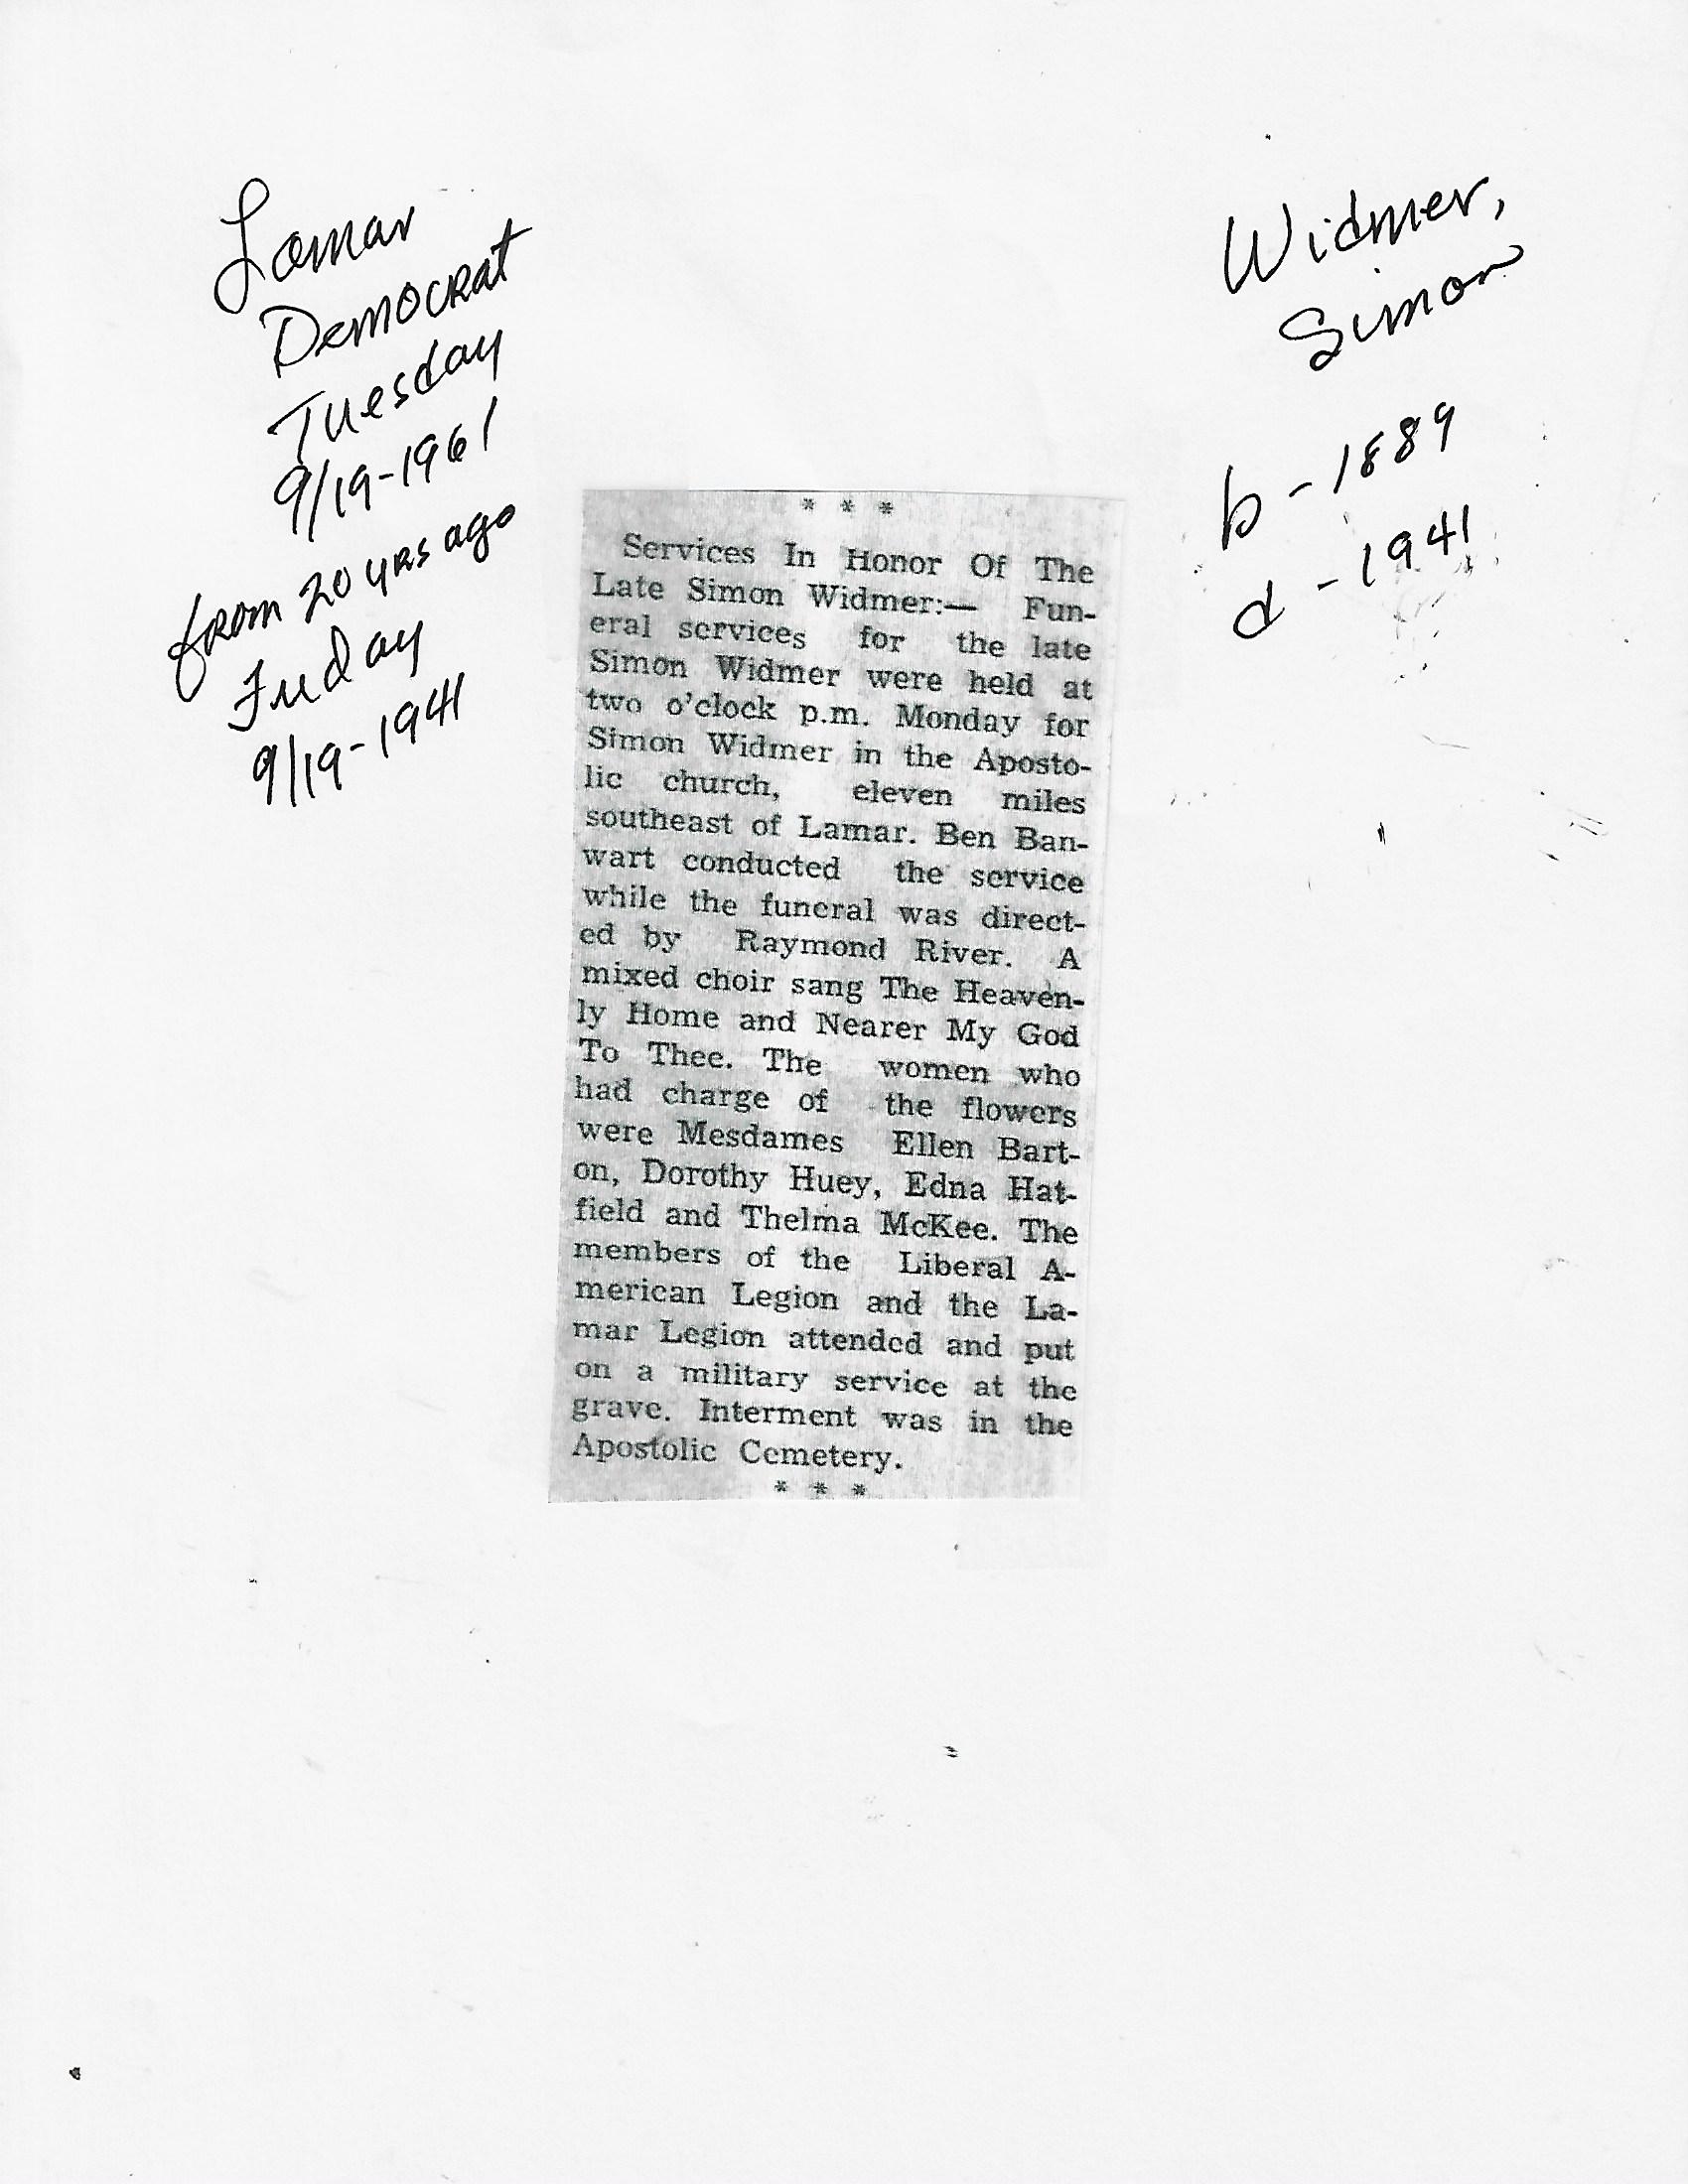 Lamar
Democrat
Tuesday
9/19-1961
from 20 yrs ago
Friday
9/19-1941
Widmer,
Simon
b - 1889
d - 1941
* * *
Services In Honor Of The
Late Simon Widmer:— Fun-
eral services for the late
Simon Widmer were held at
two o'clock p.m. Monday for
Simon Widmer in the Aposto-
lic church, eleven miles
southeast of Lamar. Ben Ban-
wart conducted the service
while the funeral was direct-
ed by Raymond River. A
mixed choir sang The Heaven-
ly Home and Nearer My God
To Thee. The women who
had charge of the flowers
were Mesdames Ellen Bart-
on, Dorothy Huey, Edna Hat-
field and Thelma McKee. The
members of the Liberal A-
merican Legion and the La-
mar Legion attended and put
on a military service at the
grave. Interment was in the
Apostolic Cemetery.
* * *